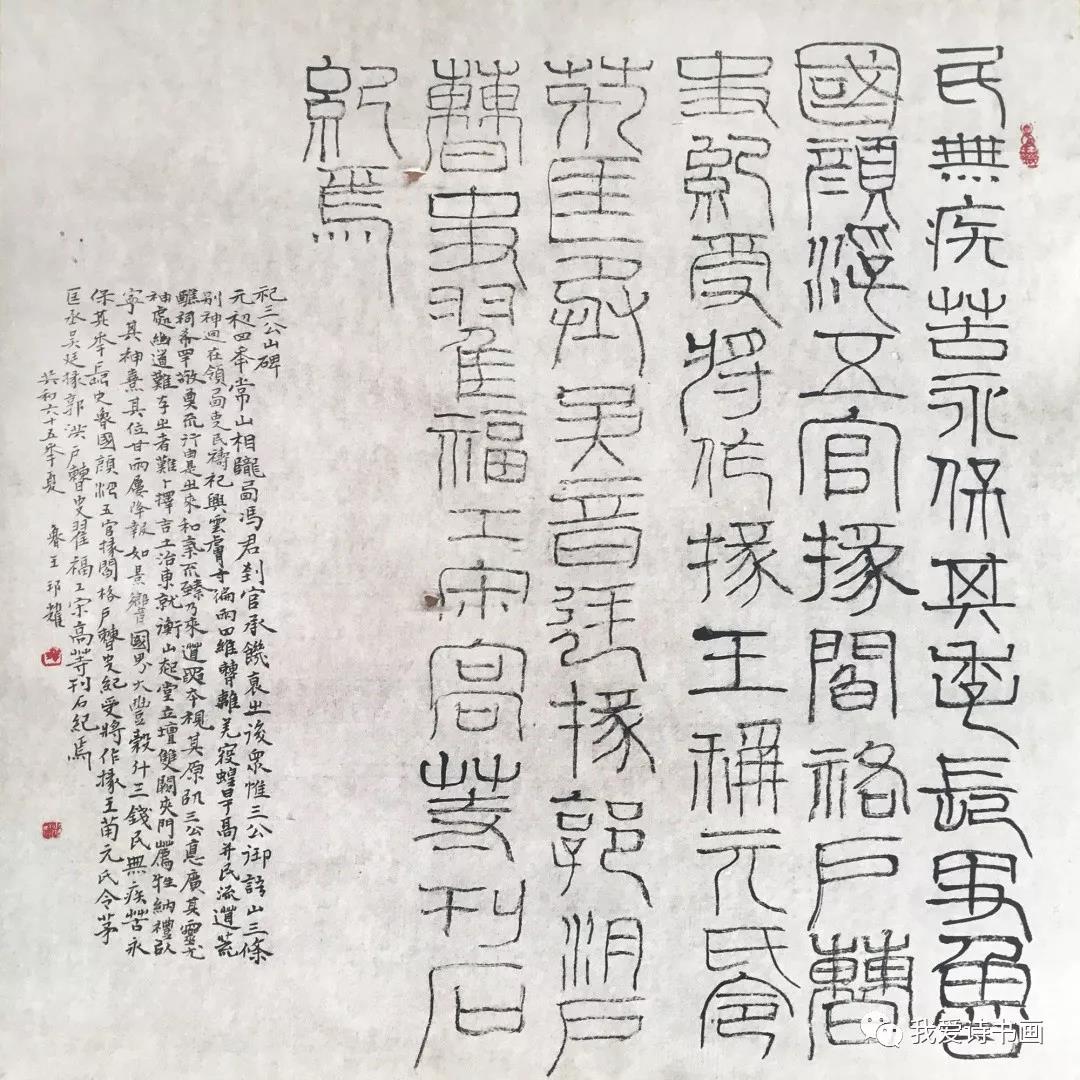 民無疾苦永保其年長史魯
國顏浮五官掾閻祐户曹
史紀受將作掾王稱元氏令
茅匡丞吴音廷掾郭洪户
曹史翟福工宋高等刊石
紀焉
祀三公山碑
元初四年常山相隴西馮君到官承饑衰之後衆惟三公御語山三條
别神迥在領西吏民禱祀興雲膚寸徧雨四維曹離羌寇蝗旱鬲并民流道荒
醮祠希罕敬奠不行由是之來和氣不臻乃來道要本視其原以三公德廣其靈尤
神處幽道難存之者難卜擇吉土治東就衡山起堂立壇雙闕夾門薦牲納禮以
寧其神熹其位甘雨屢降報如景響國界大豐穀斗三錢民無疾苦永
保其年長史魯國顏浮五官掾閻格户曹史紀受將作掾王莆元氏令茅
匡丞吴廷掾郭洪户曹史翟福工宋高等刊石紀焉
共和六十五年夏 魯王邛耀
我爱诗书画